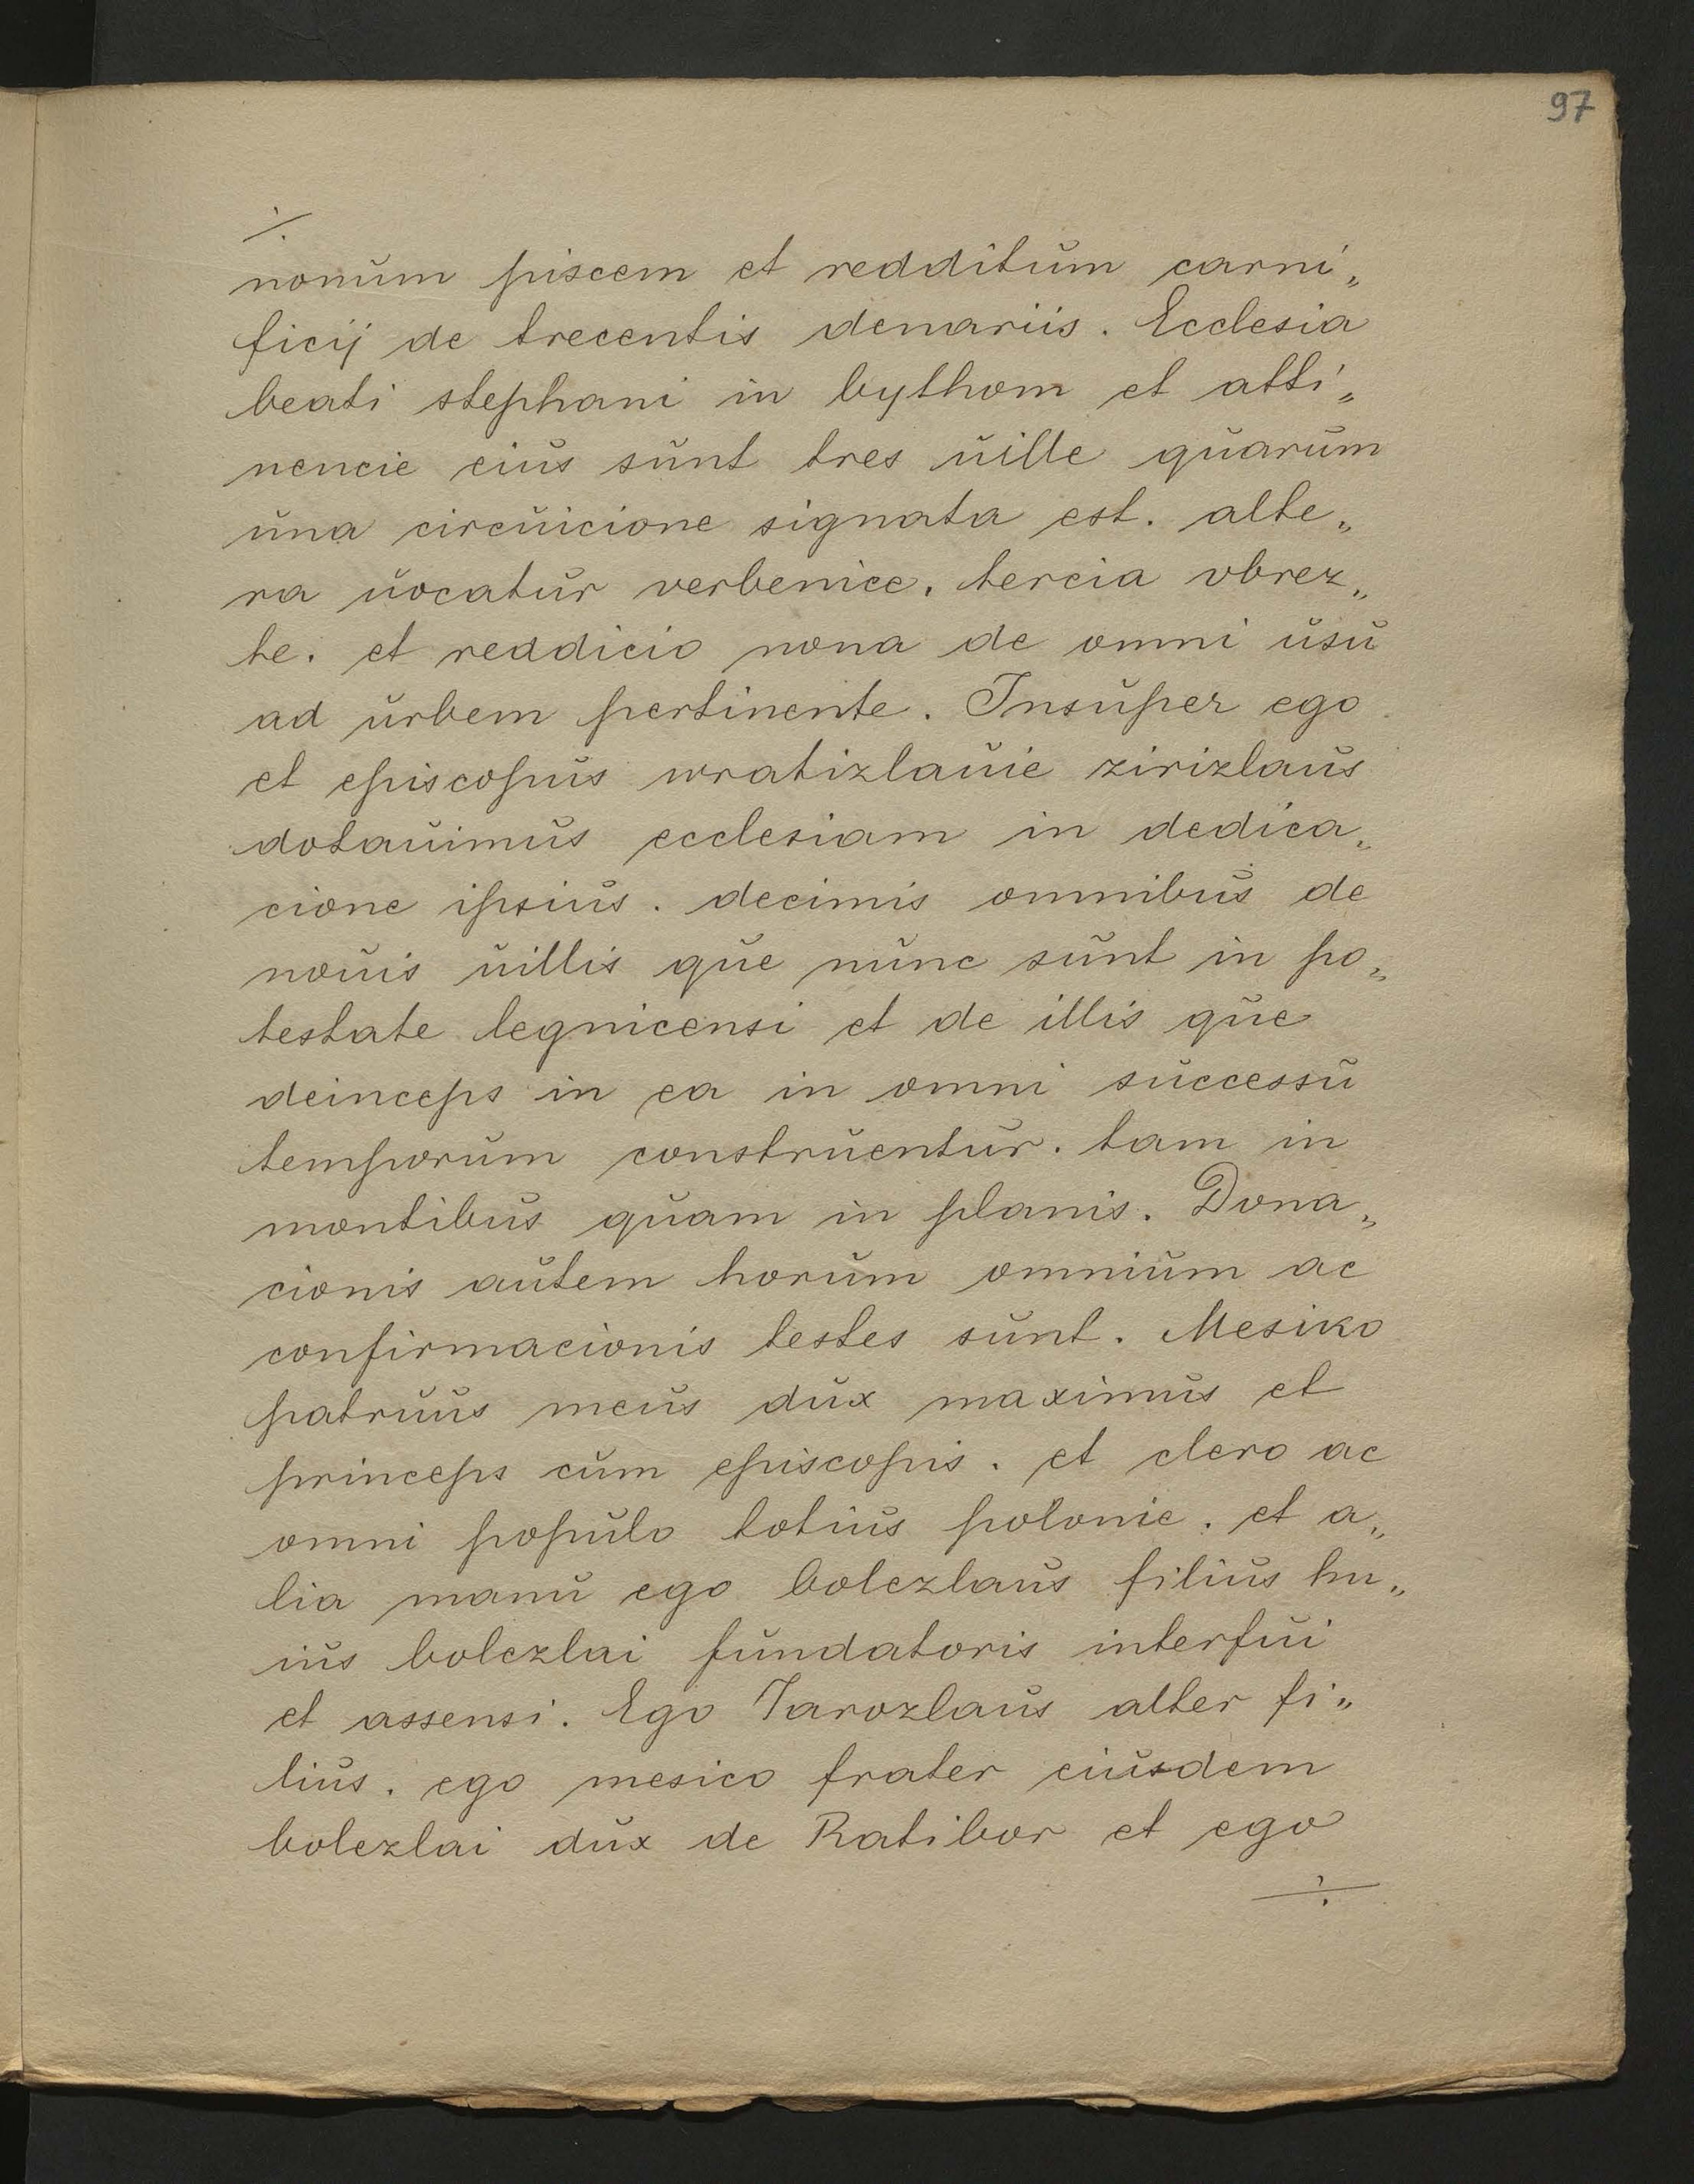 97
⁒
nonum piscem et redditum carni„
ficij de trecentis denariis. Ecclesia
beati stephani in bythom et atti„
nencie eius sunt tres uille quarum
una circuicione signata est. alte„
ra uocatur verbenice. tercia obrez„
te. et reddicio nona de omni usu
ad urbem pertinente. Insuper ego
et episcopus wratizlauie zirizlaus
dotauimus ecclesiam in dedica„
cione ipsius. decimis omnibus de
nouis uillis que nunc sunt in po„
testate legnicensi et de illis que
deinceps in ea in omni successu
temporum construentur. tam in
montibus quam in planis. Dona„
cionis autem horum omnium ac
confirmacionis testes sunt. Mesiko
patruus meus dux maximus et
princeps cum episcopis. et clero ac
omni populo totius polonie. et a„
lia manu ego bolezlaus filius hu„
ius bolezlai fundatoris interfui
et assensi. Ego Iarozlaus alter fi„
lius. ego mesico frater eiusdem
bolezlai dux de Ratibor et ego
÷